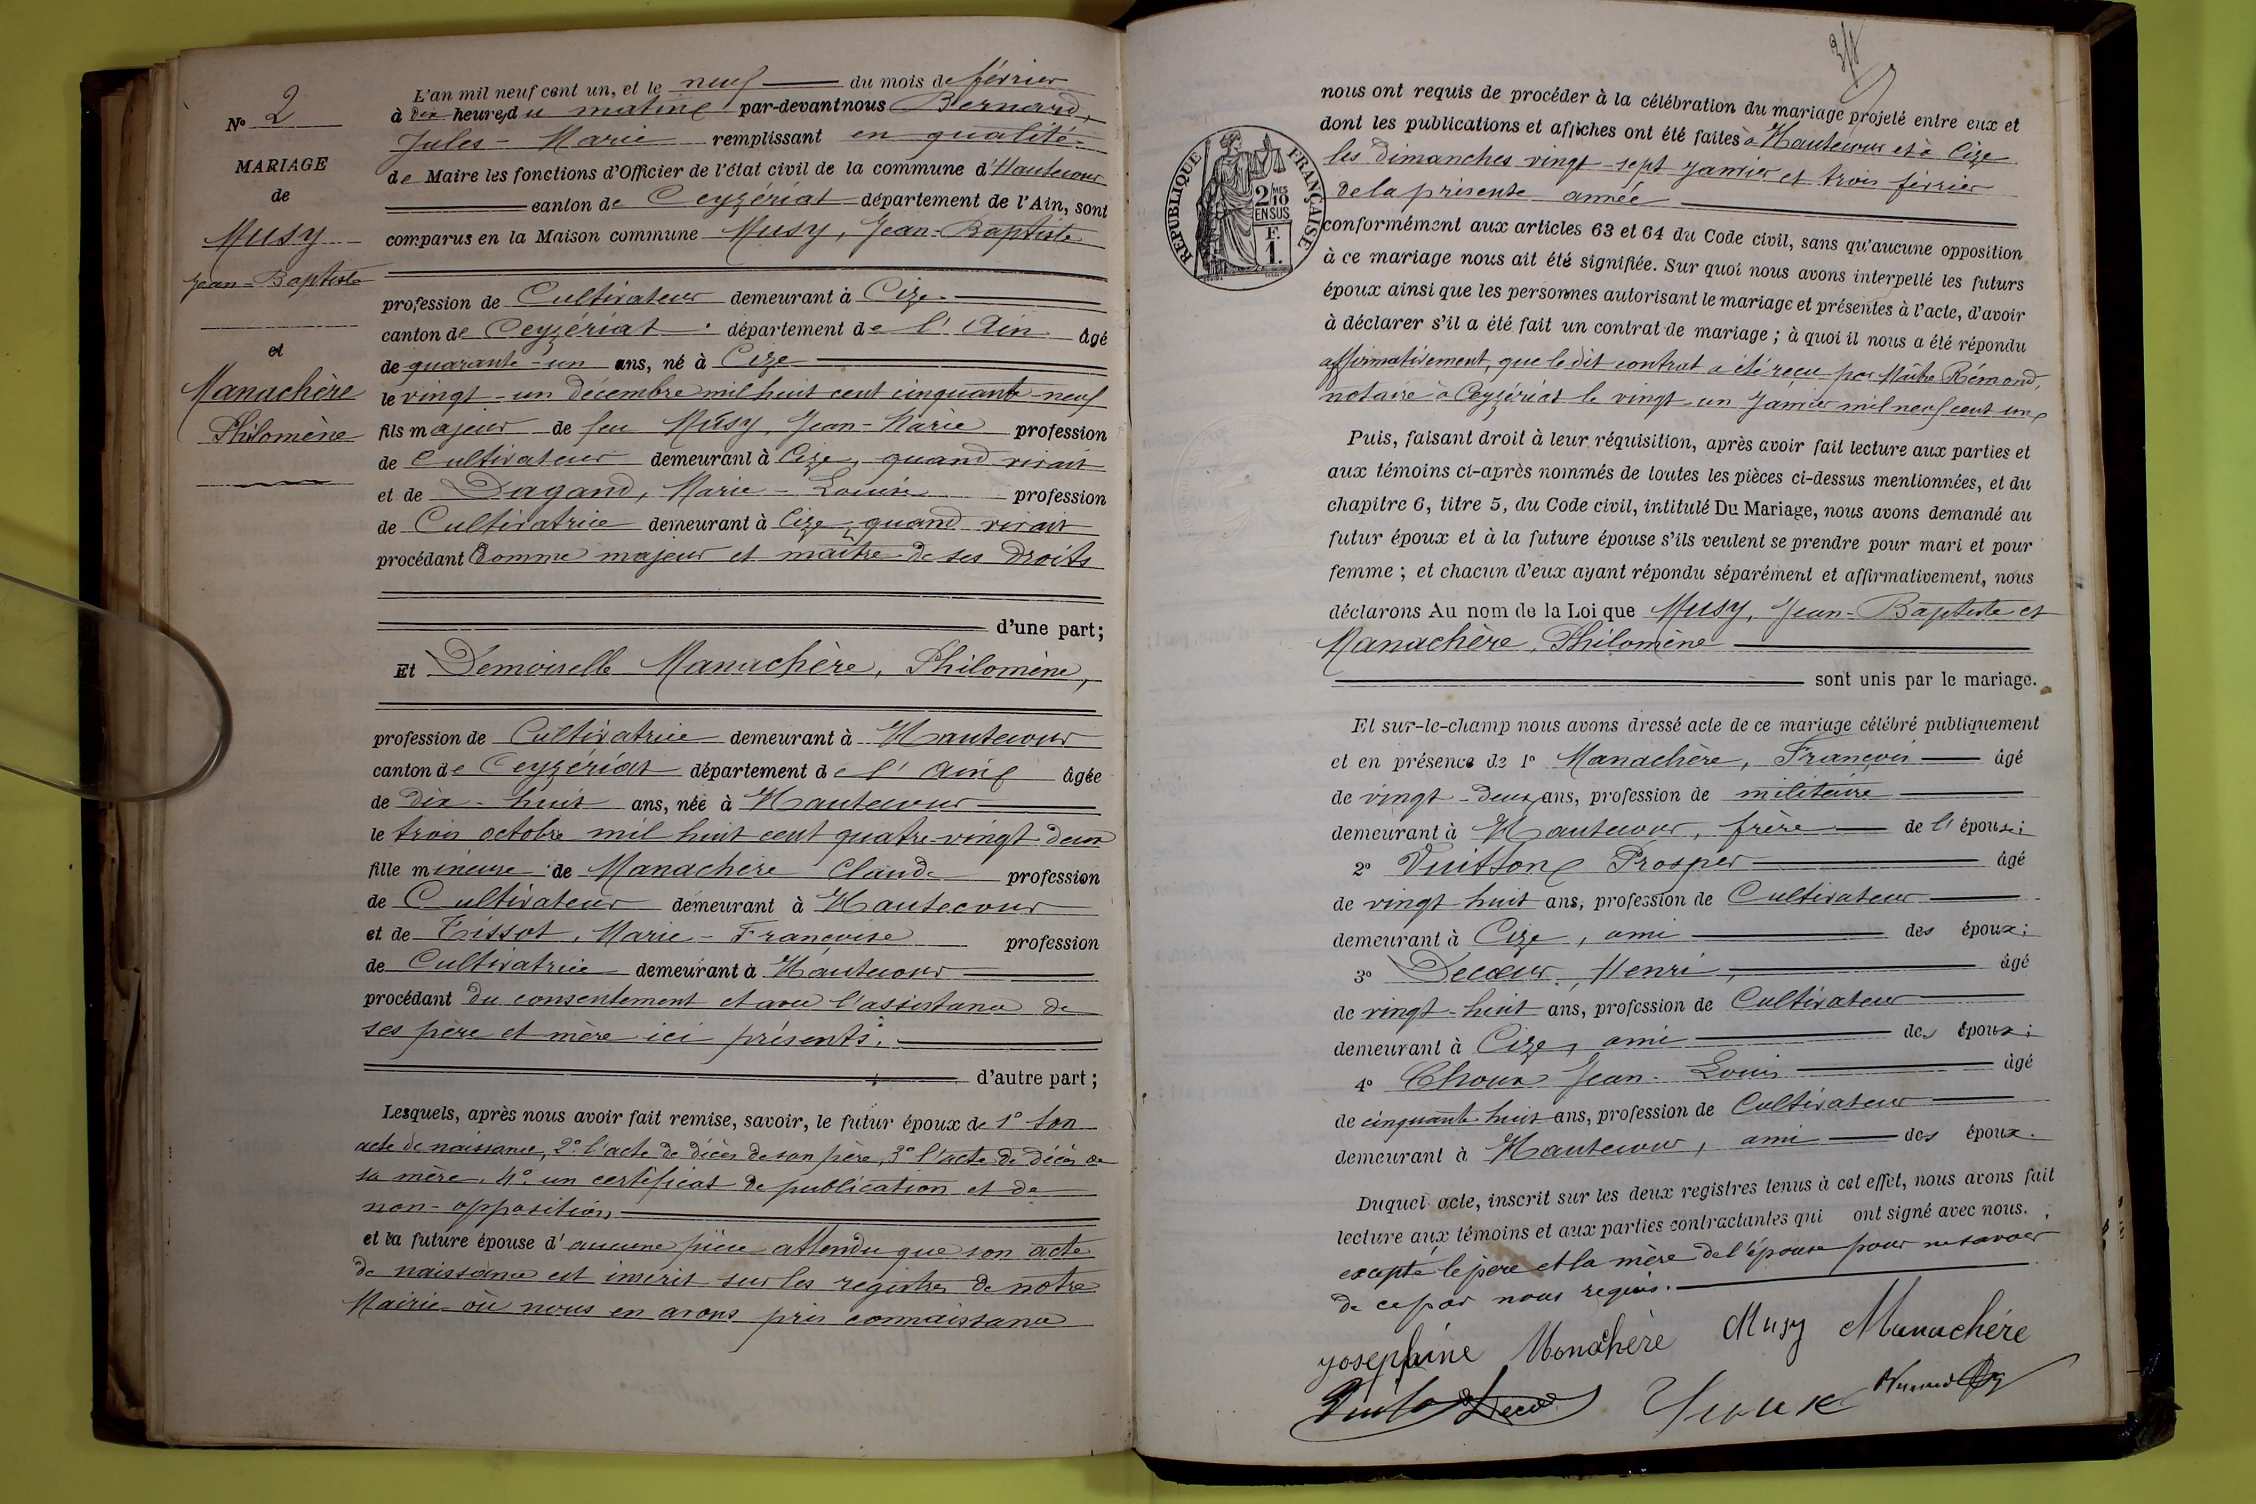 N° 2
MARIAGE
de
Musy
Jean-Baptiste
et
Manachère
Philomène
L'an mil neuf cent un, et le neuf du mois de février
à dix heures du matin par-devant nous Bernard,
Jules-Marie remplissant en qualité
de Maire les fonctions d'Officier de l'état civil de la commune d'Hautecour
canton de Ceyzériat département de l'Ain, sont
comparus en la Maison commune Musy, Jean-Baptiste
profession de Cultivateur demeurant à Cize
canton de Ceyzériat département de l'Ain âgé
de quarante-un ans, né à Cize
le vingt-un décembre mil huit cent cinquante-neuf
fils majeur de feu Musy, Jean-Marie profession
de Cultivateur demeurant à Cize, quand vivait
et de Dagand, Marie-Louise profession
de Cultivatrice demeurant à Cize, quand vivait
procédant Comme majeur et maître de ses droits
d'une part;
Et Demoiselle Manachère, Philomène,
profession de Cultivatrice demeurant à Hautecour
canton de Ceyzériat département de l'Ain âgée
de dix-huit ans, née à Hautecour
le trois octobre mil huit cent quatre-vingt-deux
fille mineure de Manachère Claude profession
de Cultivateur demeurant à Hautecour
et de Tissot, Marie-Françoise profession
de Cultivatrice demeurant à Hautecour
procédant du consentement et avec l'assistance de
ses père et mère ici présents.
d'autre part;
Lesquels, après nous avoir fait remise, savoir, le futur époux de 1° son
acte de naissance, 2° l'acte de décès de son père, 3° l'acte de décès de
sa mère, 4° un certificat de publication et de
non-opposition
et la future épouse d'aucune pièce attendu que son acte
de naissance est inscrit sur les registres de notre
Mairie où nous en avons pris connaissance
3/8
RÉPUBLIQUE FRANÇAISE
2 MES
10
EN SUS
F.
1.
nous ont requis de procéder à la célébration du mariage projeté entre eux et
dont les publications et affiches ont été faites à Hautecour et à Cize
les dimanches vingt-sept janvier et trois février
de la présente année
conformément aux articles 63 et 64 du Code civil, sans qu'aucune opposition
à ce mariage nous ait été signifiée. Sur quoi nous avons interpellé les futurs
époux ainsi que les personnes autorisant le mariage et présentes à l'acte, d'avoir
à déclarer s'il a été fait un contrat de mariage; à quoi il nous a été répondu
affirmativement, que le dit contrat a été reçu par Maître Rémond,
notaire à Ceyzériat le vingt-un janvier mil neuf cent un
Puis, faisant droit à leur réquisition, après avoir fait lecture aux parties et
aux témoins ci-après nommés de toutes les pièces ci-dessus mentionnées, et du
chapitre 6, titre 5, du Code civil, intitulé Du Mariage, nous avons demandé au
futur époux et à la future épouse s'ils veulent se prendre pour mari et pour
femme; et chacun d'eux ayant répondu séparément et affirmativement, nous
déclarons Au nom de la Loi que Musy, Jean-Baptiste et
Manachère, Philomène
sont unis par le mariage.
Et sur-le-champ nous avons dressé acte de ce mariage célébré publiquement
et en présence de 1° Manachère, François âgé
de vingt-deux ans, profession de militaire
demeurant à Hautecour, frère de l'épouse;
2° Vuitton Prosper âgé
de vingt-huit ans, profession de Cultivateur
demeurant à Cize, ami des époux;
3° Decœur, Henri, âgé
de vingt-huit ans, profession de Cultivateur
demeurant à Cize, ami des époux;
4° Choux Jean-Louis âgé
de cinquante-huit ans, profession de Cultivateur
demeurant à Hautecour, ami des époux.
Duquel acte, inscrit sur les deux registres tenus à cet effet, nous avons fait
lecture aux témoins et aux parties contractantes qui ont signé avec nous.
excepté le père et la mère de l'épouse pour ne savoir
de ce par nous requis.
Josephine Monachère Musy Manachére